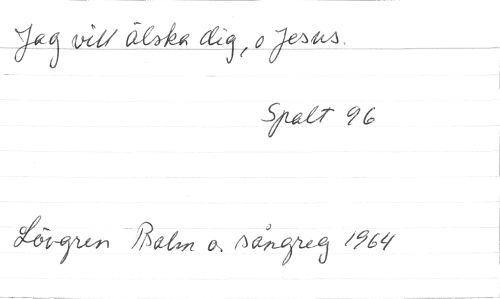 Jag vill älska dig, o Jesus.
Spalt 96
Lövgren Psalm o. sångreg 1964